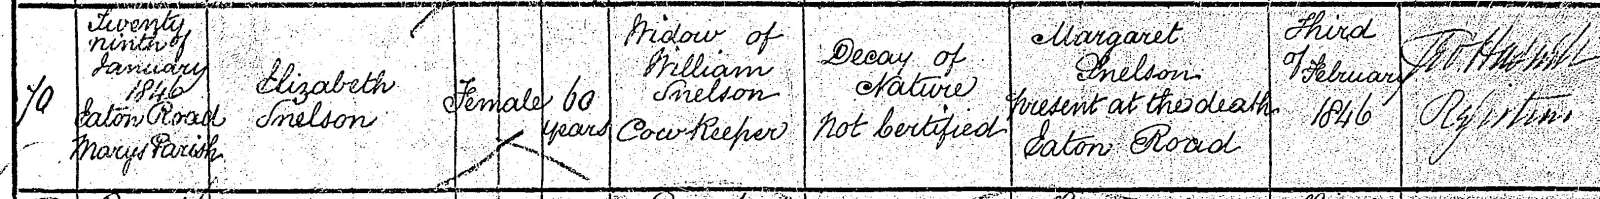 70
Twenty
ninth of
January
1846
Eaton Road
Marys Parish
Elizabeth
Snelson
Female
60
years
Widow of
William
Snelson
Cow Keeper
Decay of
Nature
Not Certified
Margaret
Snelson
present at the death
Eaton Road
Third
of February
1846
Registrar